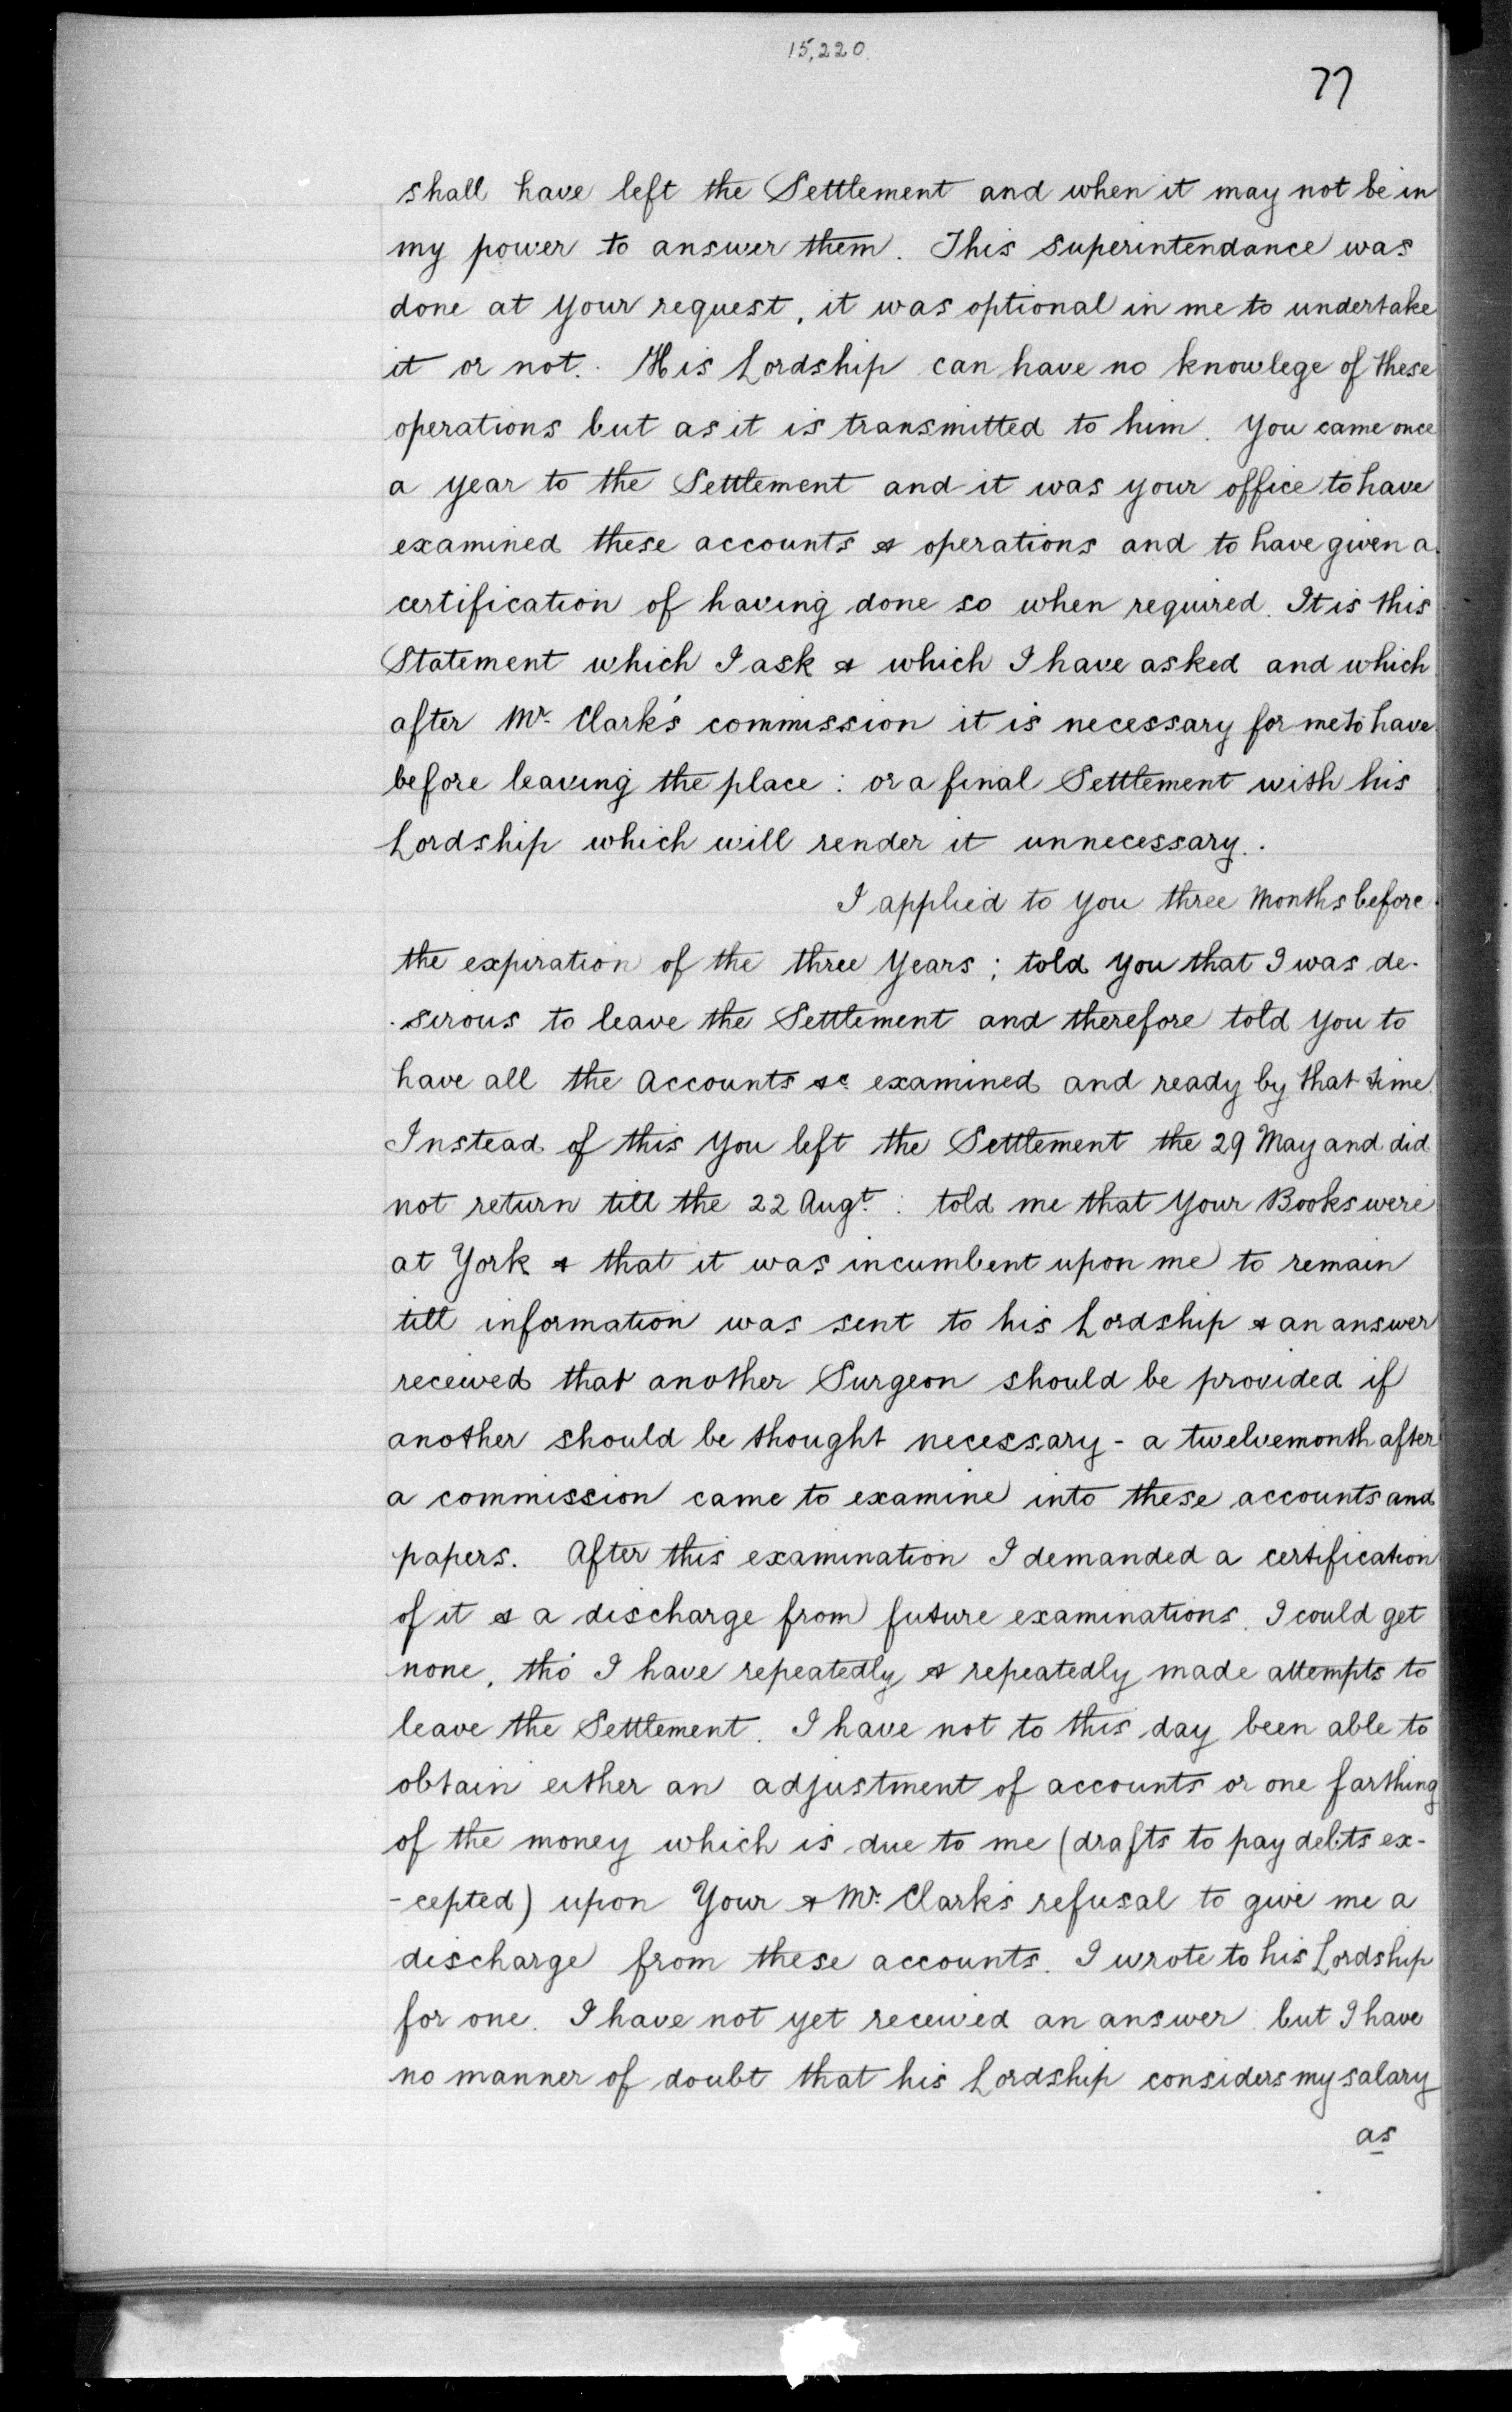 15,220.
77
shall have left the Settlement and when it may not be in
my power to answer them. This superintendance was
done at your request, it was optional in me to undertake
it or not. His Lordship can have no knowlege of these
operations but as it is transmitted to him. You came once
a year to the Settlement and it was your office to have
examined these accounts & operations and to have given a
certification of having done so when required. It is this
Statement which I ask & which I have asked and which
after Mr. Clark's commission it is necessary for me to have
before leaving the place: or a final Settlement with his
Lordship which will render it unnecessary.
I applied to you three Months before
the expiration of the three Years; told you that I was de-
-sirous to leave the Settlement and therefore told you to
have all the Accounts &c. examined and ready by that time.
Instead of this you left the Settlement the 29 May and did
not return till the 22 Augt.: told me that your Books were
at York & that it was incumbent upon me to remain
till information was sent to his Lordship & an answer
received that another Surgeon should be provided if
another should be thought necessary - a twelvemonth after
a commission came to examine into these accounts and
papers. After this examination I demanded a certification
of it & a discharge from future examinations. I could get
none, tho' I have repeatedly & repeatedly made attempts to
leave the Settlement. I have not to this day been able to
obtain either an adjustment of accounts or one farthing
of the money which is due to me (drafts to pay debts ex-
-cepted) upon Your & Mr. Clark's refusal to give me a
discharge from these accounts. I wrote to his Lordship
for one. I have not yet received an answer but I have
no manner of doubt that his Lordship considers my salary
as